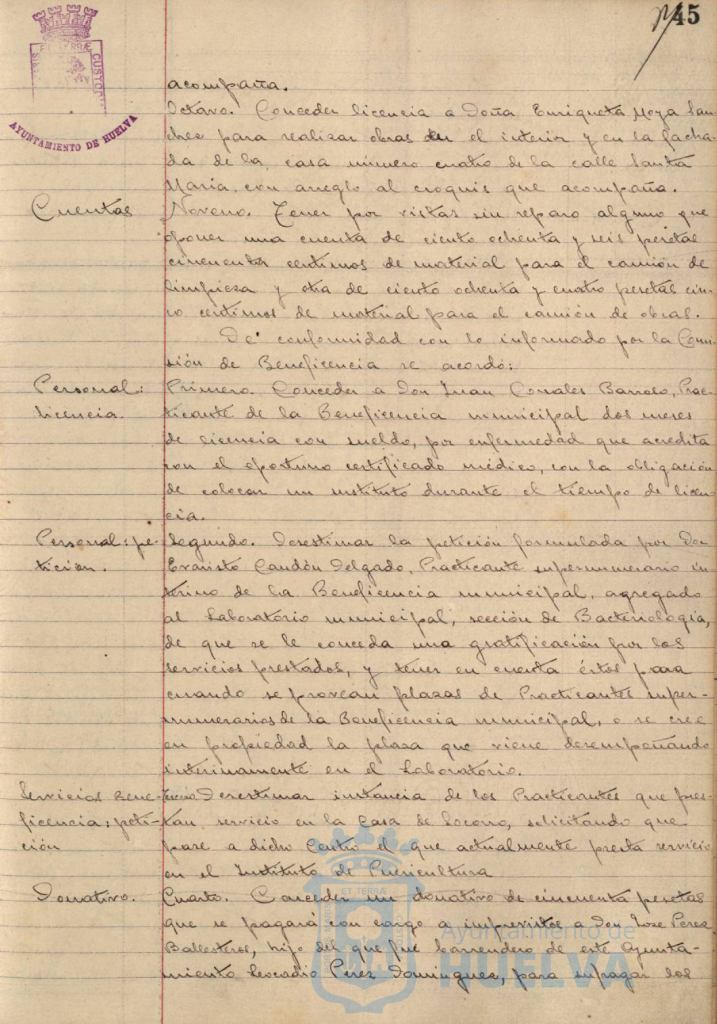 45
AYUNTAMIENTO DE HUELVA
acompaña.
Octavo. Conceder licencia a Doña Enriqueta Moya San-
chez para realizar obras en el interior y en la facha-
da de la casa número cuatro de la calle Santa
María, con arreglo al croquis que acompaña.
Cuentas
Noveno. Tener por vistas sin reparo alguno que
oponer una cuenta de ciento ochenta y seis pesetas
cincuenta centimos de material para el camión de
limpieza y otra de ciento ochenta y cuatro pesetas cin-
co centimos de material para el camión de obras.
De conformidad con lo informado por la Comi-
sión de Beneficencia se acordó:
Personal:
licencia.
Primero. Conceder a Don Juan Corrales Barroso, Prac-
ticante de la Beneficencia municipal dos meses
de licencia con sueldo, por enfermedad que acredita
con el oportuno certificado médico, con la obligación
de colocar un sustituto durante el tiempo de licen-
cia.
Personal: pe-
tición.
Segundo. Desestimar la petición formulada por Don
Evaristo Candón Delgado, Practicante supernumerario in-
terino de la Beneficencia municipal, agregado
al Laboratorio municipal, sección de Bacteriología,
de que se le conceda una gratificación por los
servicios prestados, y tener en cuenta éstos para
cuando se provean plazas de Practicantes super-
numerarios de la Beneficencia municipal, o se cree
en propiedad la plaza que viene desempeñando
interinamente en el Laboratorio.
Servicios Bene-
ficencia: peti-
ción
Tercero. Desestimar instancia de los Practicantes que pres-
tan servicio en la Casa de Socorro, solicitando que
pase a dicho Centro el que actualmente presta servicio
en el Instituto de Puericultura
Donativo.
Cuarto. Conceder un donativo de cincuenta pesetas
que se pagará con cargo a imprevistos a Don Jose Perez
Ballesteros, hijo del que fue barrendero de este Ayunta-
miento Leocadio Perez Dominguez, para sufragar los
ET TERRÆ
Ayuntamiento de
HUELVA